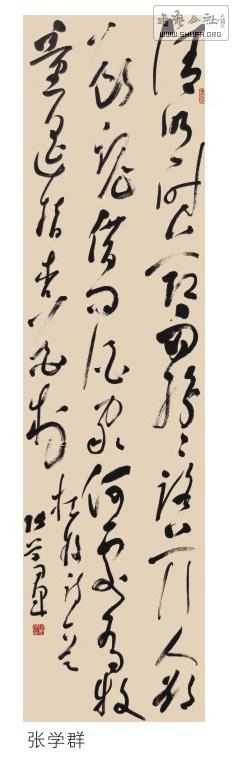 书艺公社
WWW.SHUFA.ORG
清明时节雨纷纷路上行人欲
断魂借问酒家何处有牧
童遥指杏花村
杜牧诗
张学群
张学群